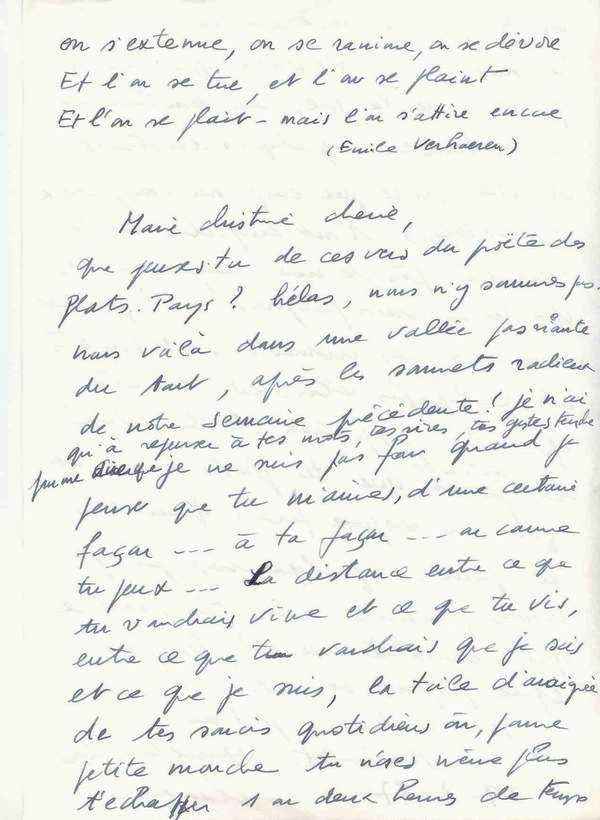 on s'extenue, on se ranime, on se dévore
Et l'on se tue, et l'on se plaint
Et l'on se plait - mais l'on s'attire encore
(Emile Verhaeren)
Marie christine cherie,
que penses-tu de ces vers du poëte des
Plats. Pays ? hélas, nous n'y sommes pas.
nous voilà dans une vallée pas riante
du tout, après les sommets radieux
de notre semaine précédente ! je n'ai
qu'à repenser à tes mots, tes rires, tes gestes tendres
pour me dire que je ne suis pas fou quand je
pense que tu m'aimes, d'une certaine
façon --- à ta façon --- ou comme
tu peux --- La distance entre ce que
tu voudrais vivre et ce que tu vis,
entre ce que tu voudrais que je sois
et ce que je suis, la toile d'araignée
de tes soucis quotidiens où, pauvre
petite mouche tu n'oses même plus
t'echapper 1 ou deux heures de temps